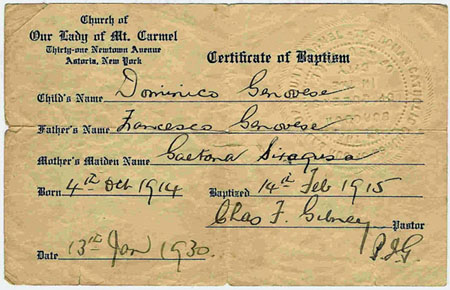 Church of
Our Lady of Mt. Carmel
Thirty-one Newtown Avenue
Astoria, New York
Certificate of Baptism
Child's Name Dominico Genovese
Father's Name Francesco Genovese
Mother's Maiden Name Gaetana Siragusa
Born 4th Oct 1914 Baptized 14th Feb 1915
Chas F. Gibney Pastor
P.J.G.
Date 13th Jan 1930.